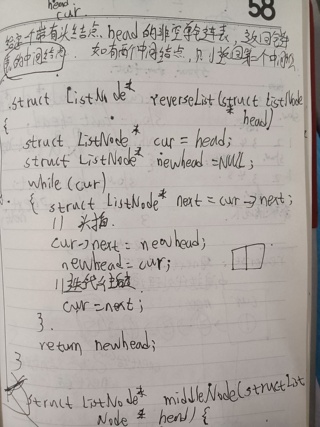 head
cur.
58
给定一个带有头结点、head的非空单链表，返回链
表的中间结点. 如有两个中间结点，则返回第二个中间结
struct ListNode* reverseList(struct ListNode
* head)
{
struct ListNode* cur = head;
struct ListNode* newhead = NULL;
while (cur)
{ struct ListNode* next = cur->next;
// 头插
cur->next = newhead;
newhead = cur;
// 迭代往后
cur = next;
}
return newhead;
}
struct ListNode* middleNode(struct List
Node * head) {